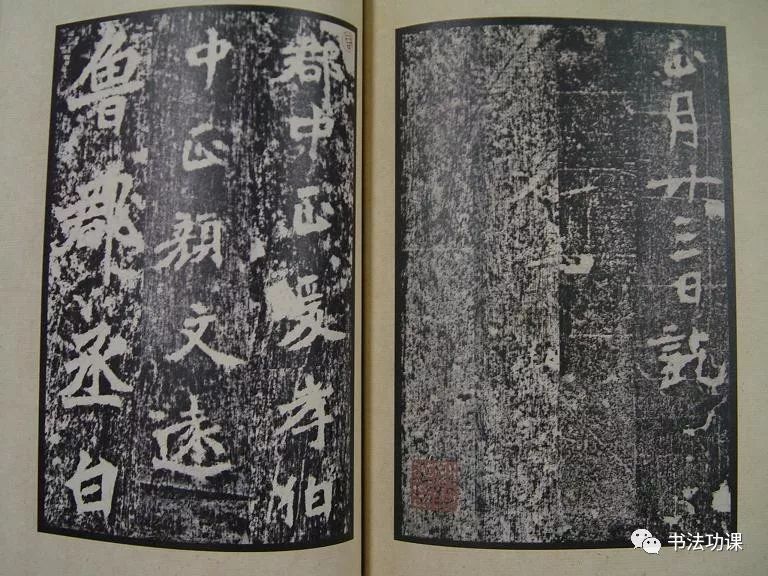 正月廿三日訖
郡中正爰孝伯
中正顏文遠
魯郡丞白
书法功课